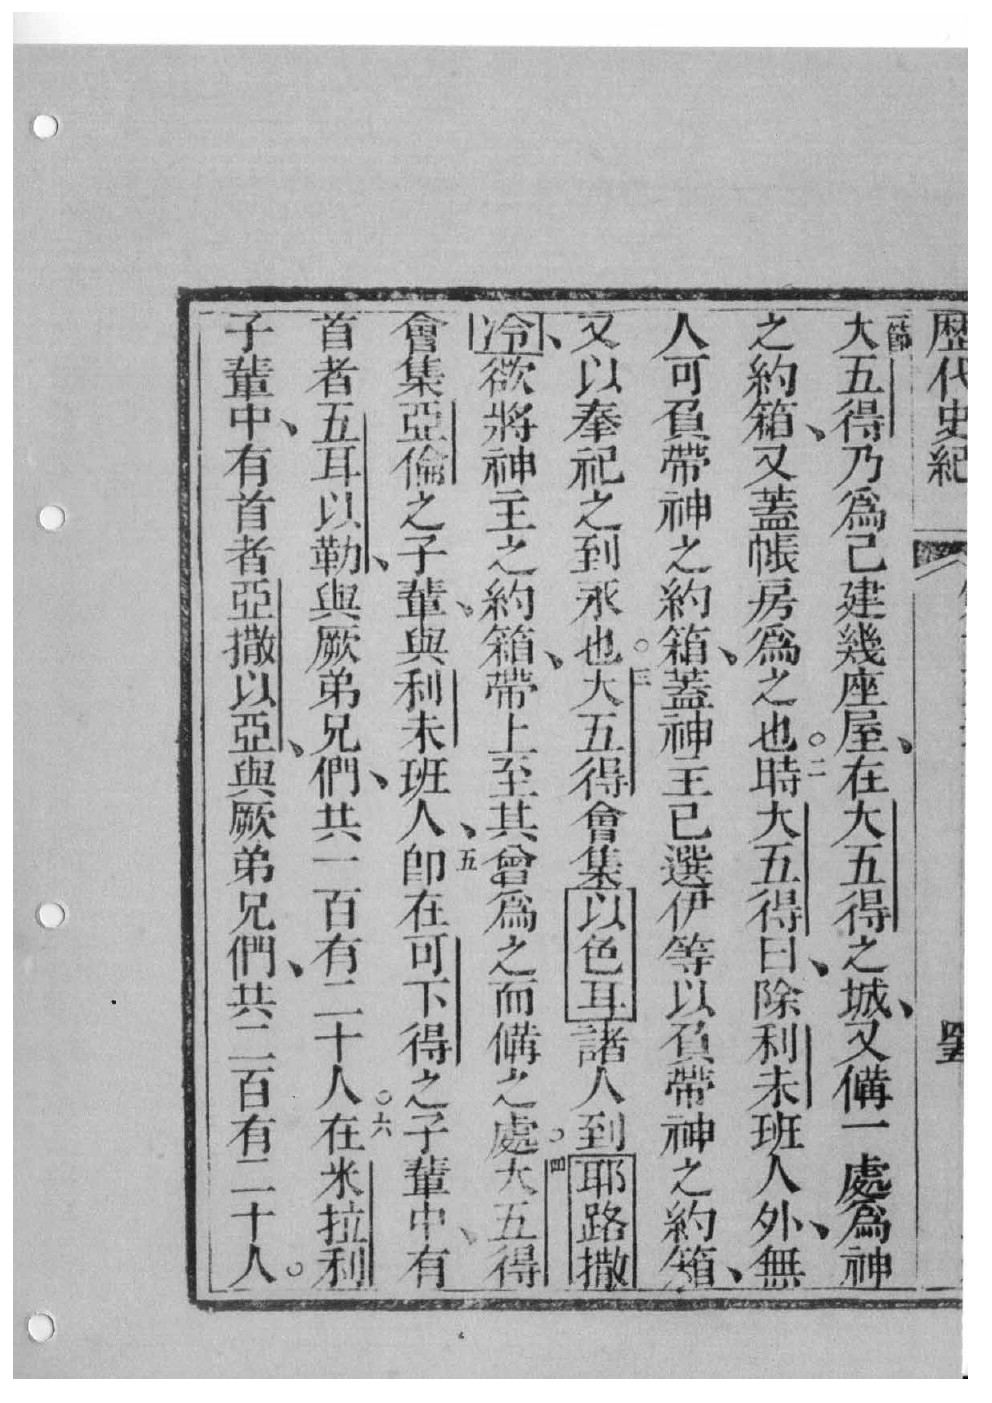 歷代史紀
一節大五得乃爲己建幾座屋、在大五得之城、又備一處爲神
之約箱、又蓋帳房爲之也○二時大五得曰、除利未班人外、無
人可負帶神之約箱、蓋神主已選伊等以負帶神之約箱、
又以奉祀之到永也○三大五得會集以色耳諸人到耶路撒
冷、欲將神主之約箱、帶上至其曾爲之而備之處○四大五得
會集亞倫之子輩、與利未班人、五卽在可下得之子輩中、有
首者五耳以勒、與厥弟兄們、共一百有二十人○六在米拉利
子輩中、有首者亞撒以亞、與厥弟兄們、共二百有二十人。